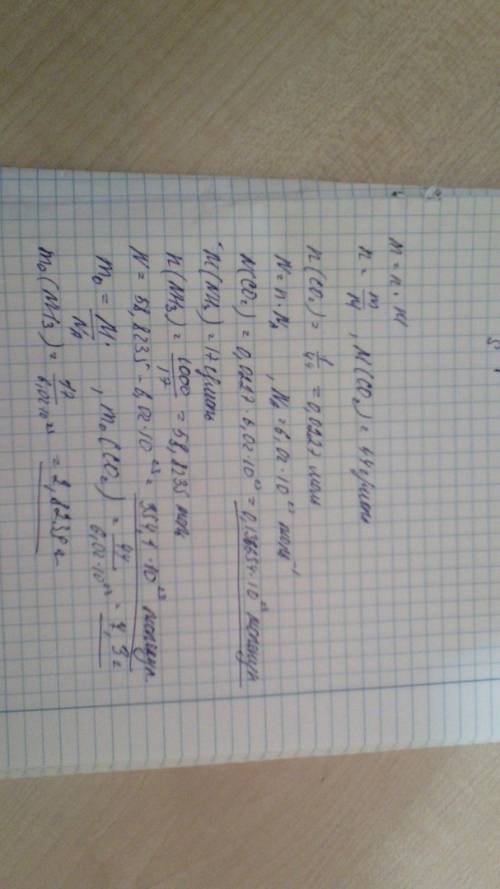 M = n · M
n = m/M , M(CO₂) = 44 г/моль
n(CO₂) = 1/44 = 0,0227 моль
N = n · Nₐ , Nₐ = 6,02 · 10²³ моль⁻¹
N(CO₂) = 0,0227 · 6,02 · 10²³ = 0,13654 · 10²³ молекул
M(NH₃) = 17 г/моль
n(NH₃) = 1000/17 = 58,8235 моль
N = 58,8235 · 6,02 · 10²³ = 354,1 · 10²³ молекул
m₀ = M/Nₐ , m₀(CO₂) = 44/6,02·10²³ = 7,3 г
m₀(NH₃) = 17/6,02·10²³ = 2,8239 г